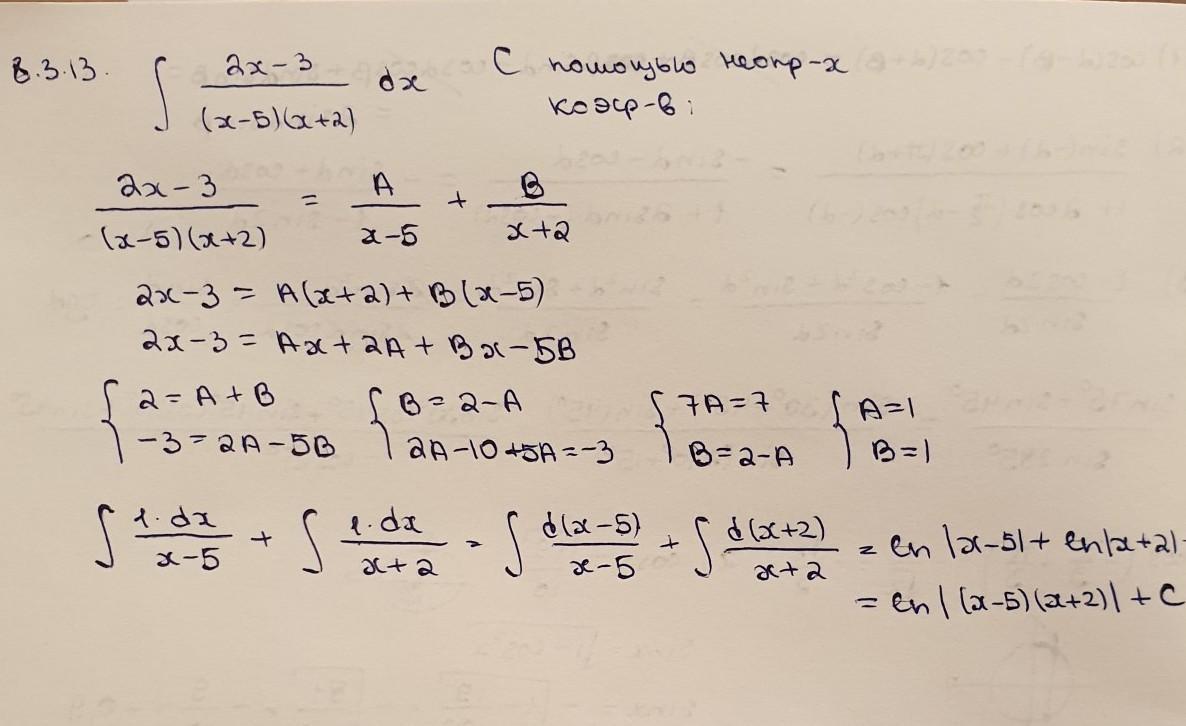 8.3.13. ∫ (2x-3)/((x-5)(x+2)) dx С помощью неопр-х
коэф-в:
(2x-3)/((x-5)(x+2)) = A/(x-5) + B/(x+2)
2x-3 = A(x+2) + B(x-5)
2x-3 = Ax + 2A + Bx - 5B
{ 2 = A + B { B = 2-A { 7A = 7 { A = 1
{ -3 = 2A - 5B { 2A - 10 + 5A = -3 { B = 2-A { B = 1
∫ (1·dx)/(x-5) + ∫ (1·dx)/(x+2) = ∫ d(x-5)/(x-5) + ∫ d(x+2)/(x+2) = ln|x-5| + ln|x+2|
= ln|(x-5)(x+2)| + C